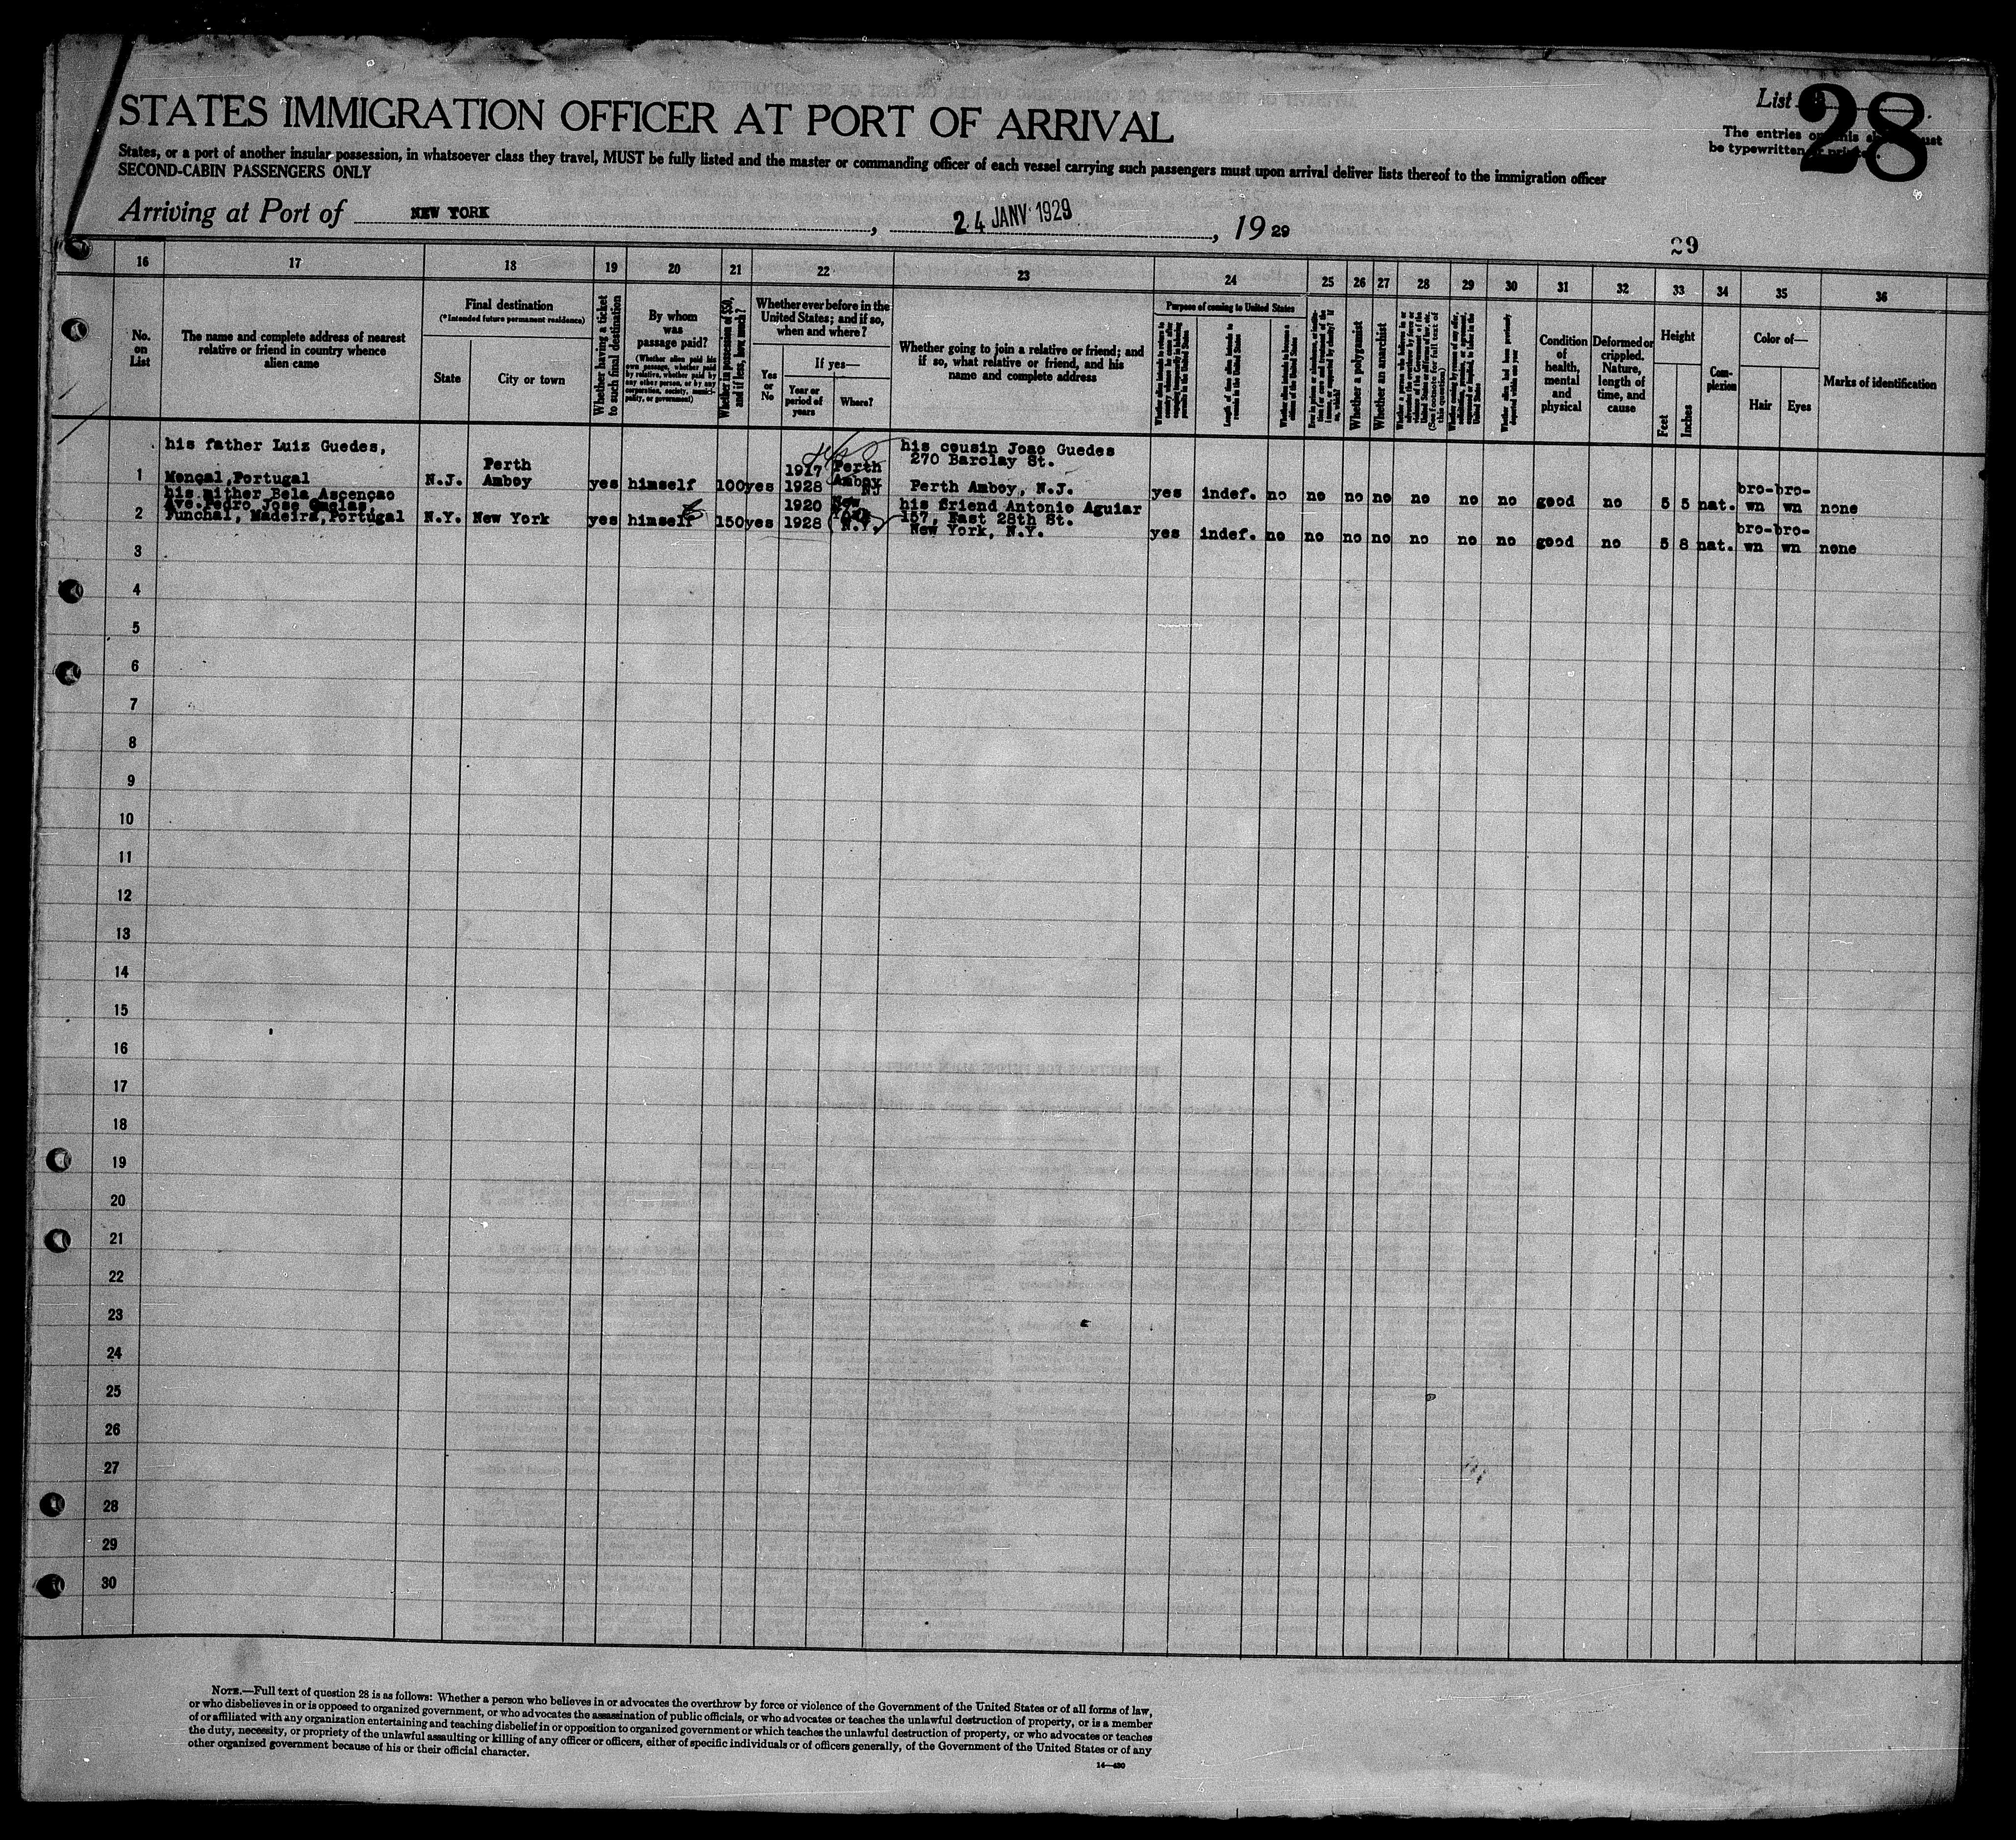 STATES IMMIGRATION OFFICER AT PORT OF ARRIVAL
List
28
The entries on this sheet must
be typewritten or printed.
States, or a port of another insular possession, in whatsoever class they travel, MUST be fully listed and the master or commanding officer of each vessel carrying such passengers must upon arrival deliver lists thereof to the immigration officer
SECOND-CABIN PASSENGERS ONLY
Arriving at Port of NEW YORK, 24 JANV 1929, 19 29
29
16 17 18 19 20 21 22 23 24 25 26 27 28 29 30 31 32 33 34 35 36
No.
on
List
The name and complete address of nearest
relative or friend in country whence
alien came
Final destination
(*Intended future permanent residence)
State
City or town
Whether having a ticket
to such final destination
By whom
was
passage paid?
(Whether alien paid his
own passage, whether paid
by relative, whether paid by
any other person, or by any
corporation, society, munici-
pality, or government)
Whether in possession of $50,
and if less, how much?
Whether ever before in the
United States; and if so,
when and where?
Yes
or
No
If yes—
Year or
period of
years
Where?
Whether going to join a relative or friend; and
if so, what relative or friend, and his
name and complete address
Purpose of coming to United States
Length of time alien intends to
remain in the United States
Whether alien intends to become a
citizen of the United States
Whether a polygamist
Whether an anarchist
(See footnote for full text of
this question)
Whether alien had been previously
deported within one year
Condition
of
health,
mental
and
physical
Deformed or
crippled.
Nature,
length of
time, and
cause
Height
Feet
Inches
Com-
plexion
Color of—
Hair
Eyes
Marks of identification
his father Luiz Guedes,
Perth
1917 Perth
his cousin Joao Guedes
270 Barclay St.
1 Monçal, Portugal N.J. Amboy yes himself 100 yes 1928 Amboy NJ Perth Amboy, N.J. yes indef. no no no no no no no good no 5 5 nat. bro-wn bro-wn none
his mither Bela Ascençao
Ave. Pedro Jose
1920 New
his friend Antonio Aguiar
2 Funchal, Madeira, Portugal N.Y. New York yes himself 150 yes 1928 N.Y. 157, East 28th St.
New York, N.Y. yes indef. no no no no no no no good no 5 8 nat. bro-wn bro-wn none
3
4
5
6
7
8
9
10
11
12
13
14
15
16
17
18
19
20
21
22
23
24
25
26
27
28
29
30
NOTE.—Full text of question 28 is as follows: Whether a person who believes in or advocates the overthrow by force or violence of the Government of the United States or of all forms of law,
or who disbelieves in or is opposed to organized government, or who advocates the assassination of public officials, or who advocates or teaches the unlawful destruction of property, or is a member
of or affiliated with any organization entertaining and teaching disbelief in or opposition to organized government or which teaches the unlawful destruction of property, or who advocates or teaches
the duty, necessity, or propriety of the unlawful assaulting or killing of any officer or officers, either of specific individuals or of officers generally, of the Government of the United States or of any
other organized government because of his or their official character.
14—430